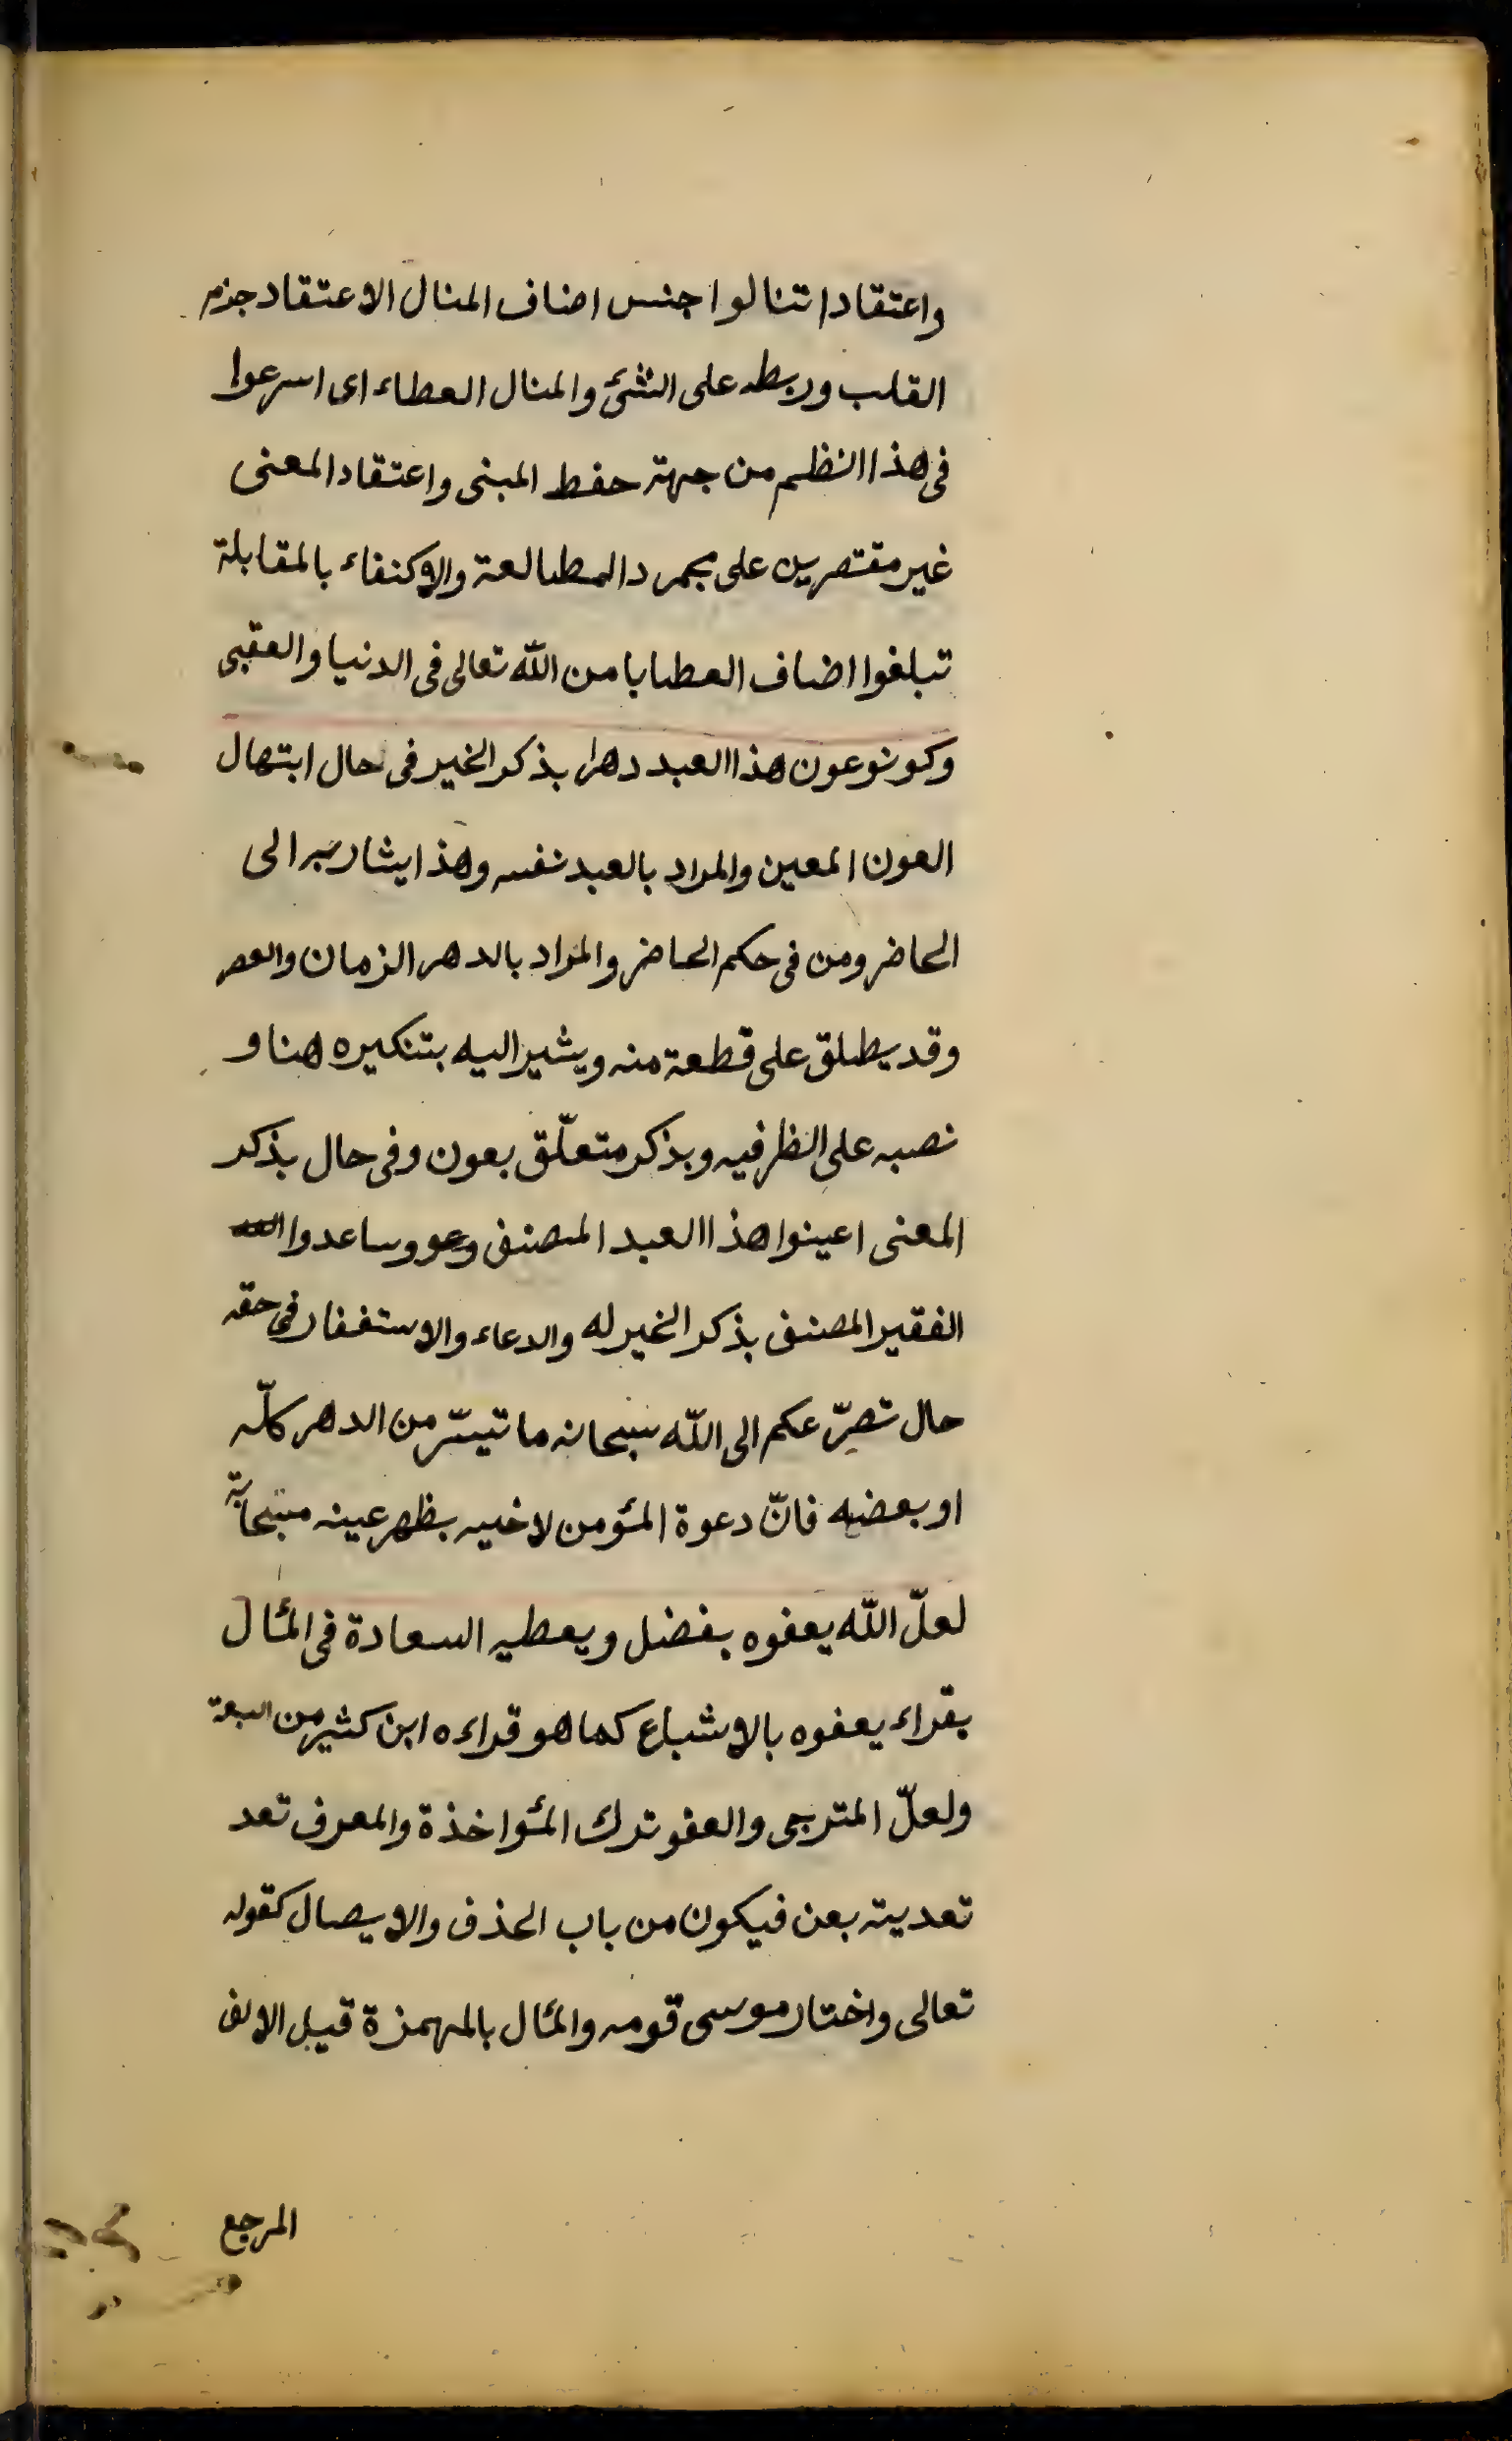 واعتقادا تنالوا جنس اضاف المنال الاعتقاد جزم
القلب وربطه على الشئ والمنال العطاء اى اسرعوا
فى هذا النظم من جهة حفط المبنى واعتقاد المعنى
غير مقتصرين على مجمرد المطالعة والاكتفاء بالمقابلة
تبلغوا اضاف العطايا من الله تعالى فى الدنيا والعقبى
وكونوعون هذا العبد دهرا بذكر الخير فى حال ابتهال
العون المعين والمراد بالعبد نفسه وهذا يشار به الى
الحاضر ومن فى حكم الحاضر والمراد بالدهر الزمان والعصر
وقد يطلق على قطعة منه ويشير اليه بتنكيره هنا و
نصبه على الظرفيه وبذكر متعلّق بعون وفى حال بذكر
المعنى اعينوا هذا العبد المصنف وساعدوا
الفقير المصنف بذكر الخير له والدعاء والاستغفار فى حقه
حال تضرّعكم الى اللّه سبحانه ما تيسّر من الدهر كلّه
او بعضه فانّ دعوة المئومن لاخيه بظهر عينه مستجابة
لعلّ اللّه يعفوه بفضل ويعطيه السعادة فى المئال
يقراء يعفوه بالاشباع كما هو قراءه ابن كثير من السبعة
ولعلّ المترجى والعفو ترك المئواخذة والمعرف تعد
تعديته بعن فيكون من باب الحذف والايصال كقوله
تعالى واختار موسى قومه والمئال بالمهمزة قبل الالف
المرجع